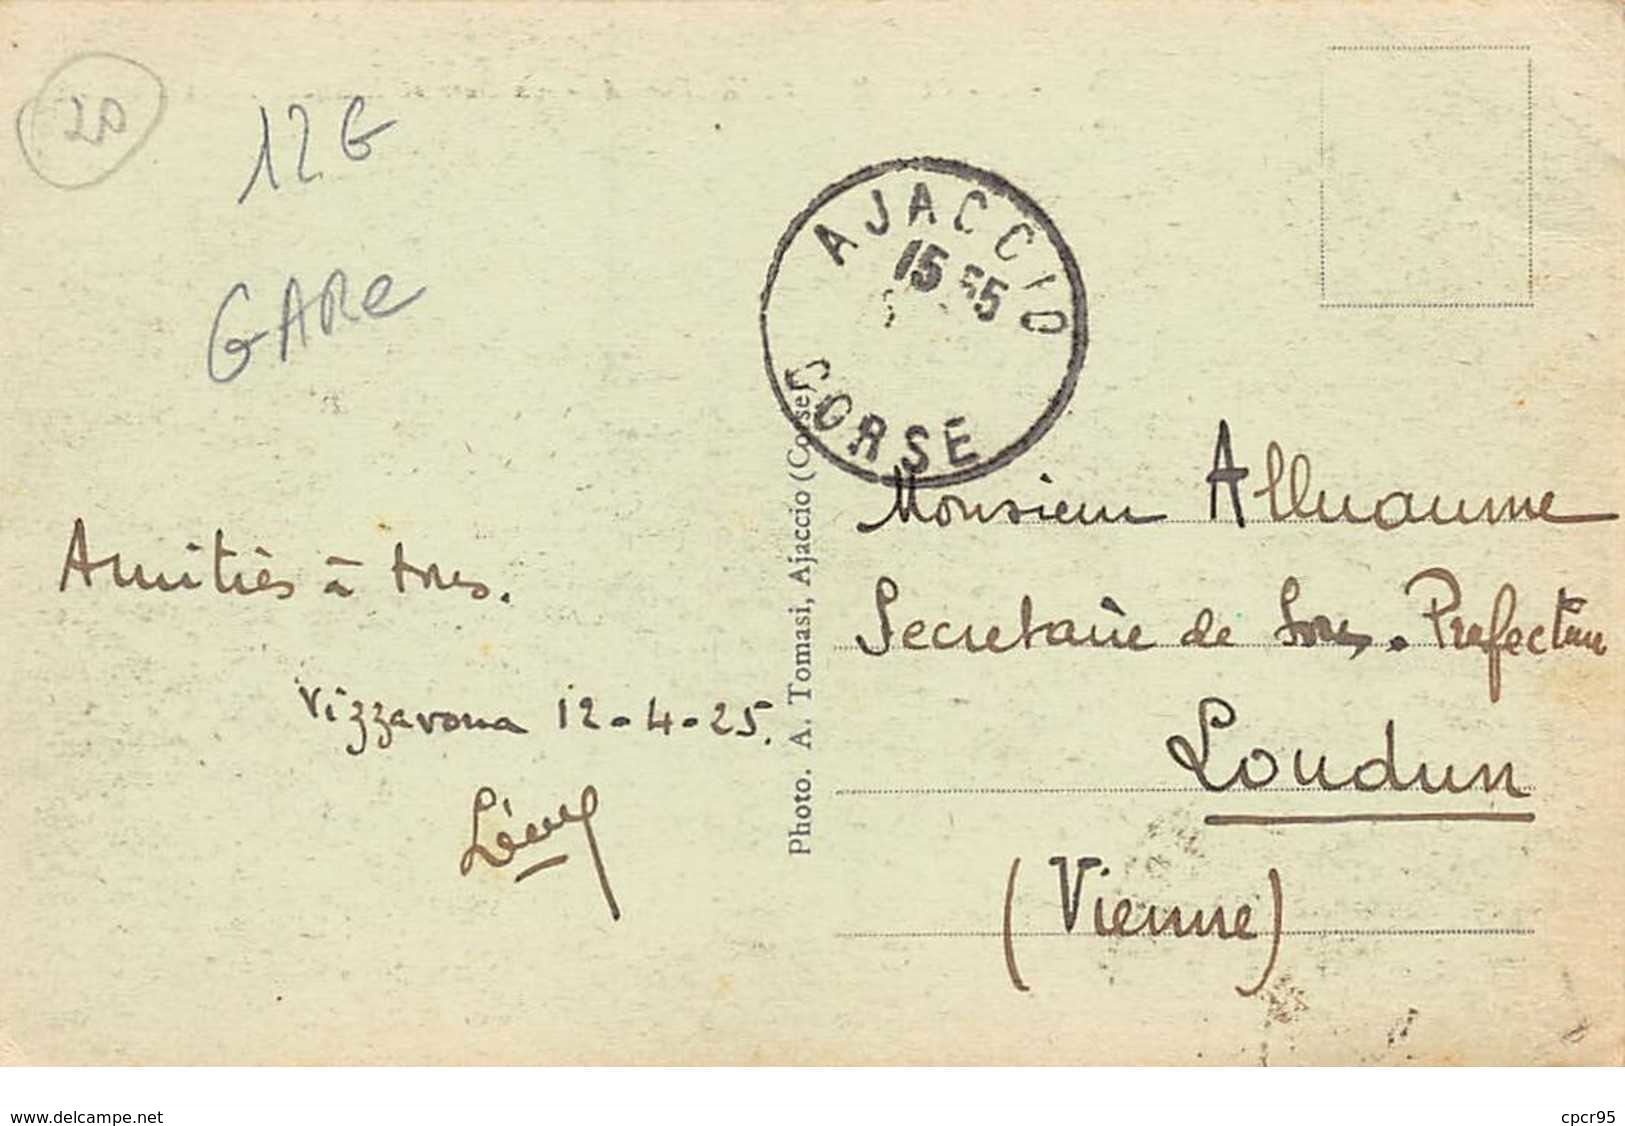 20
12 G
GARE
AJACCIO
15 35
CORSE
Photo. A. Tomasi, Ajaccio (Corse)
Amitiés à tous.
Vizzavona 12-4-25.
Monsieur Alluaume
Secrétaire de Sous-Préfecture
Loudun
(Vienne)
www.delcampe.net
cpcr95